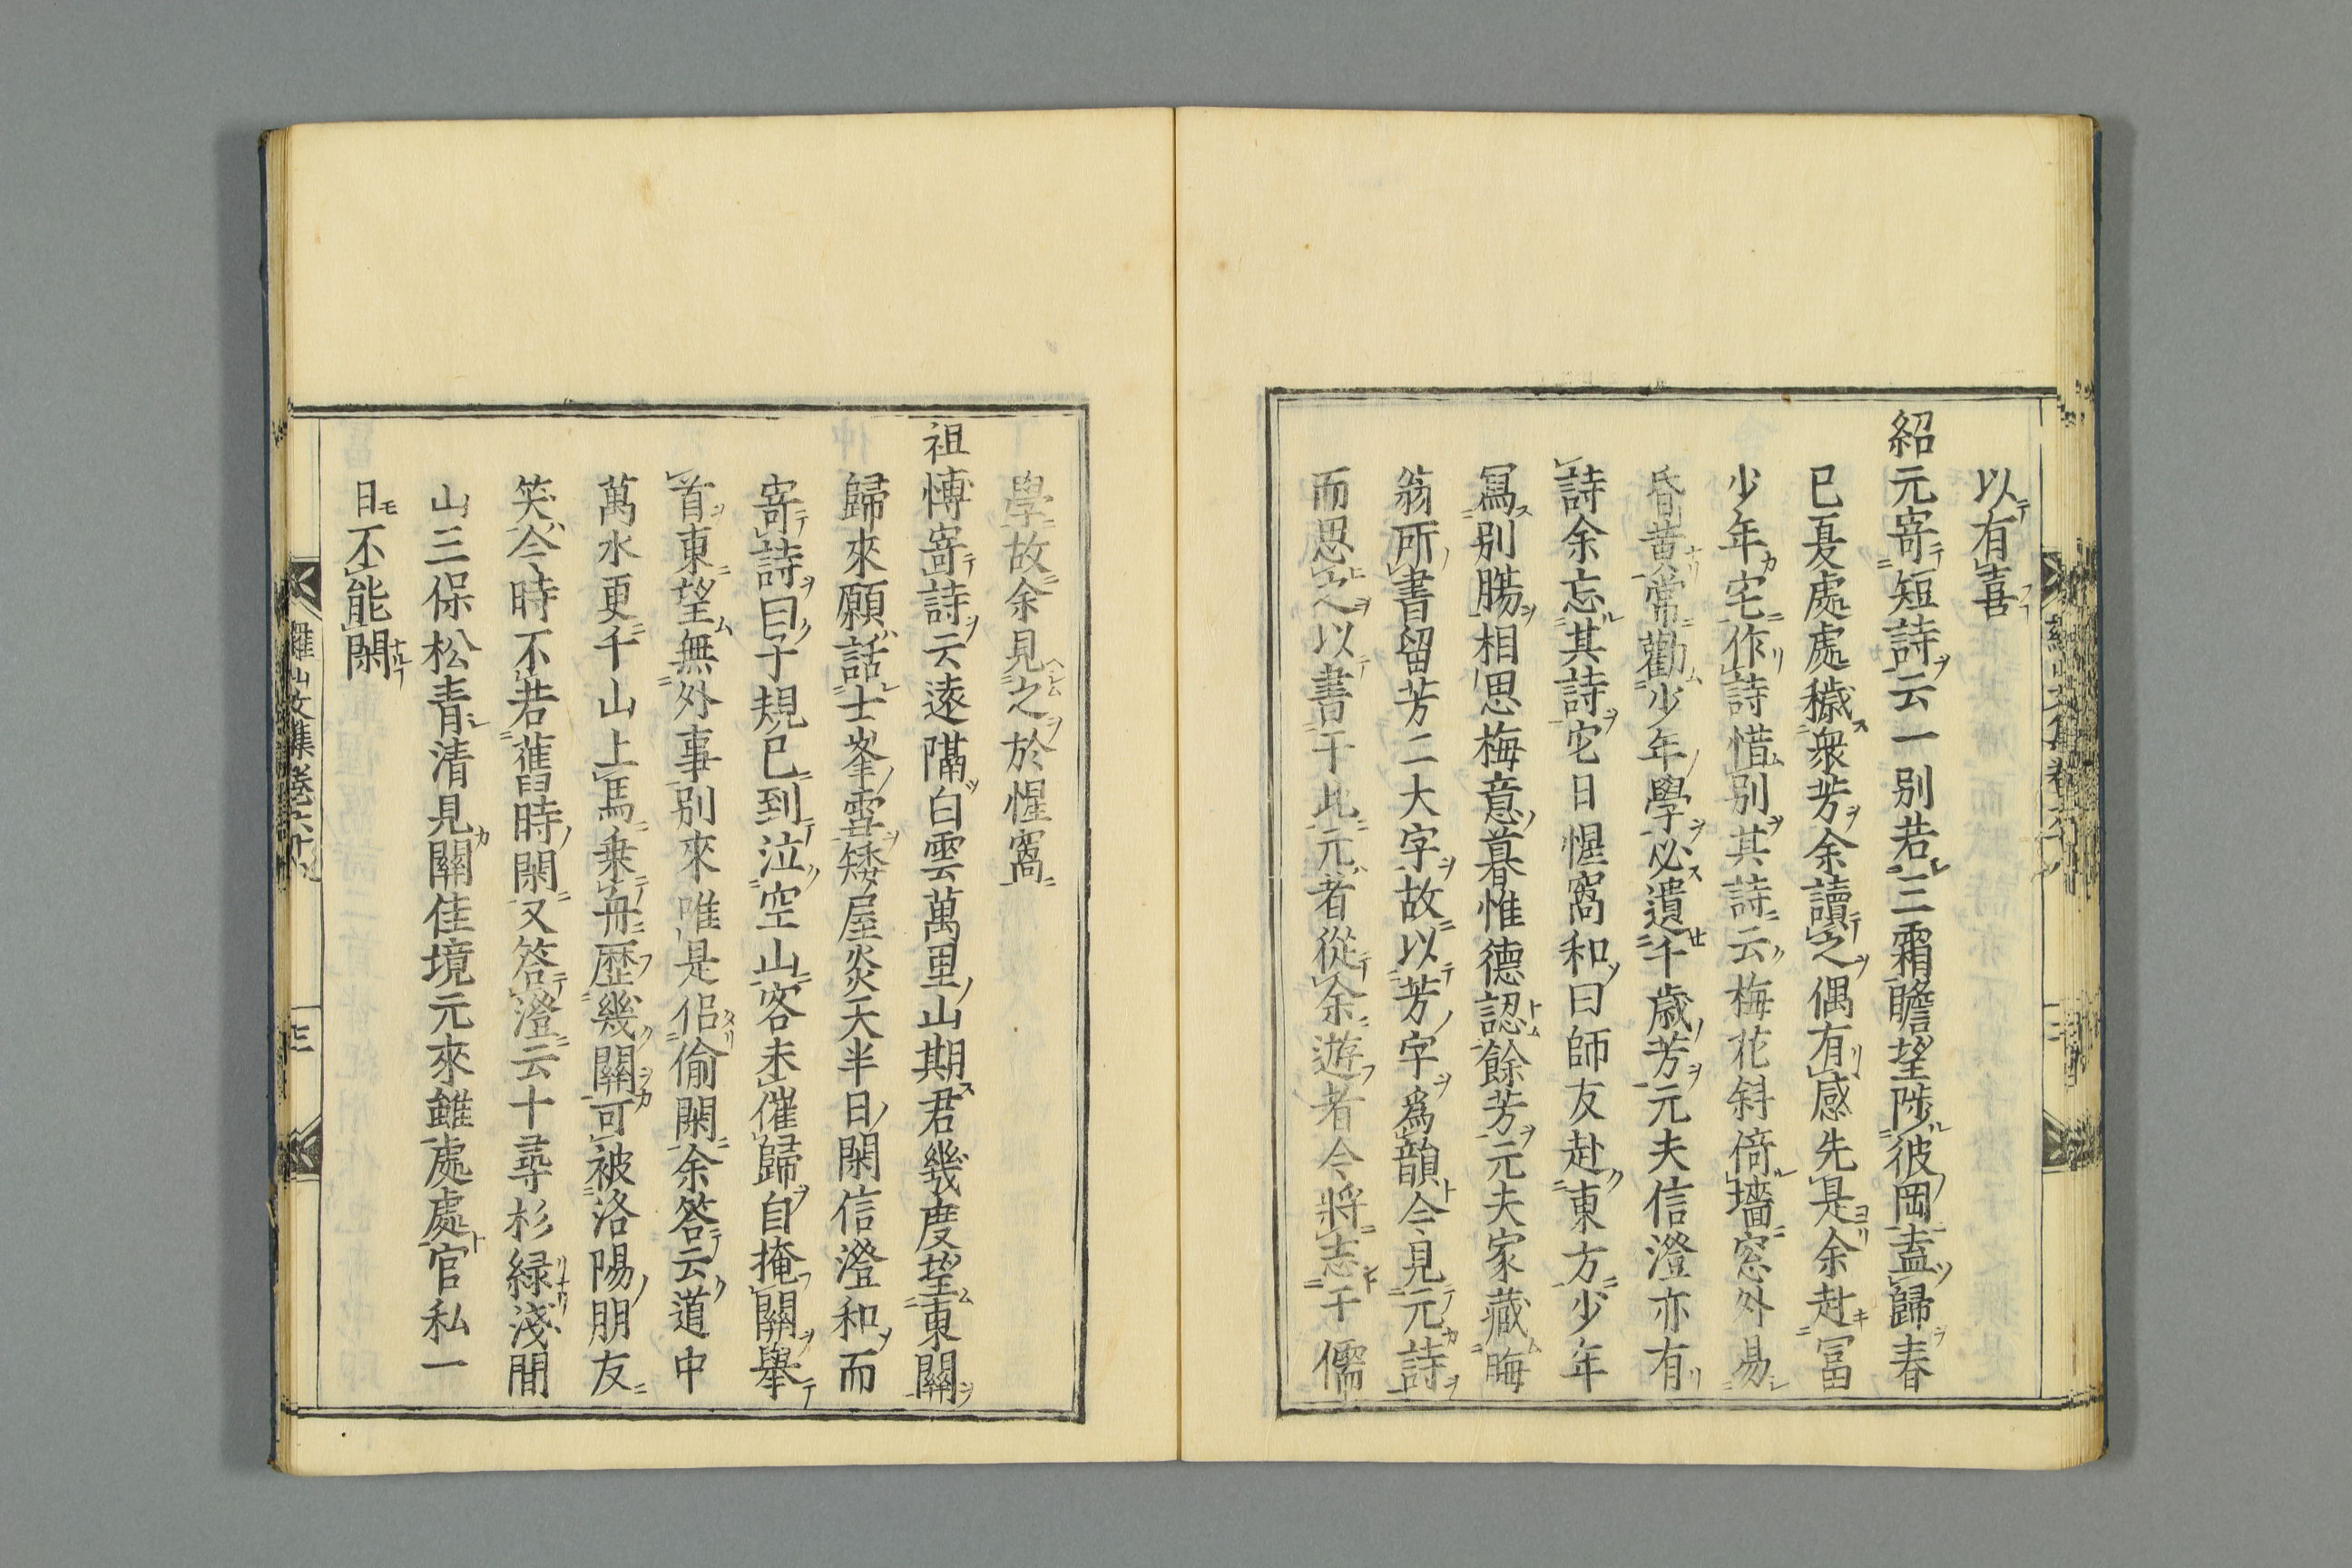 以有喜
紹元寄短詩云一別若三霜瞻望陟彼岡盍歸春
已夏處處穢衆芳余讀之偶有感先是余赴冨
少年宅作詩惜別其詩云梅花斜倚墻窓外易
昏黃常勸少年學必遺千歲芳元夫信澄亦有
詩余忘其詩它日惺窩和曰師友赴東方少年
冩別膓相思梅意暮惟德認餘芳元夫家藏晦
翁所書留芳二大字故以芳字爲韻今見元詩
而思之以書于此元者從余遊者今將志于儒
學故余見之於惺窩
祖博寄詩云遠隔白雲萬里山期君幾度望東關
歸來願話士峯雪矮屋炎天半日閑信澄和而
寄詩曰子規已到泣空山客未催歸自掩關擧
首東望無外事別來唯是侶偷閑余答云道中
萬水更千山上馬乗舟歷幾關可被洛陽朋友
笑今時不若舊時閑又答澄云十尋杉緑淺間
山三保松青清見關佳境元來雖處處官私一
日不能閑
羅山文集卷六十